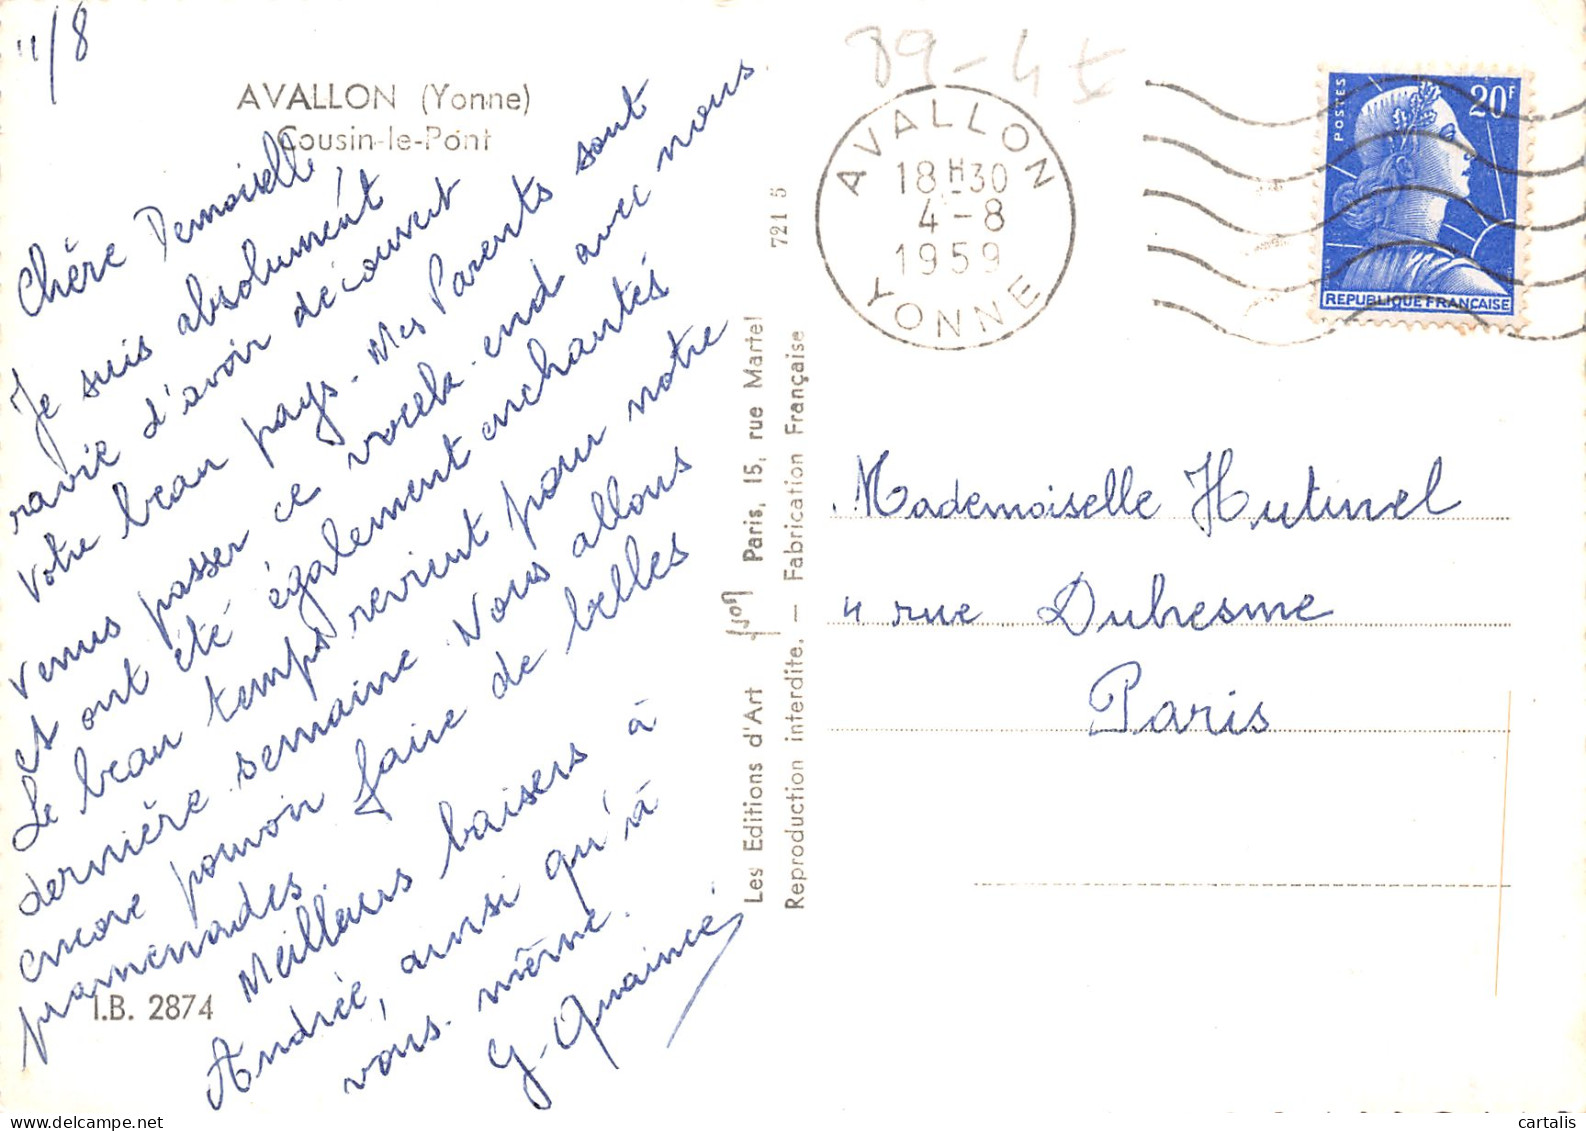 4/8
AVALLON (Yonne)
Cousin-le-Pont
Chère Demoiselle,
Je suis absolument
ravie d'avoir découvert
votre beau pays. Mes Parents sont
venus passer ce week-end avec nous
et ont été également enchantés
Le beau temps revient pour notre
dernière semaine. Nous allons
encore pouvoir faire de belles
promenades.
Meilleurs baisers à
Andrée, ainsi qu'à
vous-même.
G. Quaincé
I.B. 2874
Les Editions d'Art yvon Paris, 15, rue Martel
Reproduction interdite. — Fabrication Française
721 5
89-4
AVALLON
18H30
4-8
1959
YONNE
POSTES
20F
REPUBLIQUE FRANÇAISE
Mademoiselle Hutinel
4 rue Dubesme
Paris
cartalis